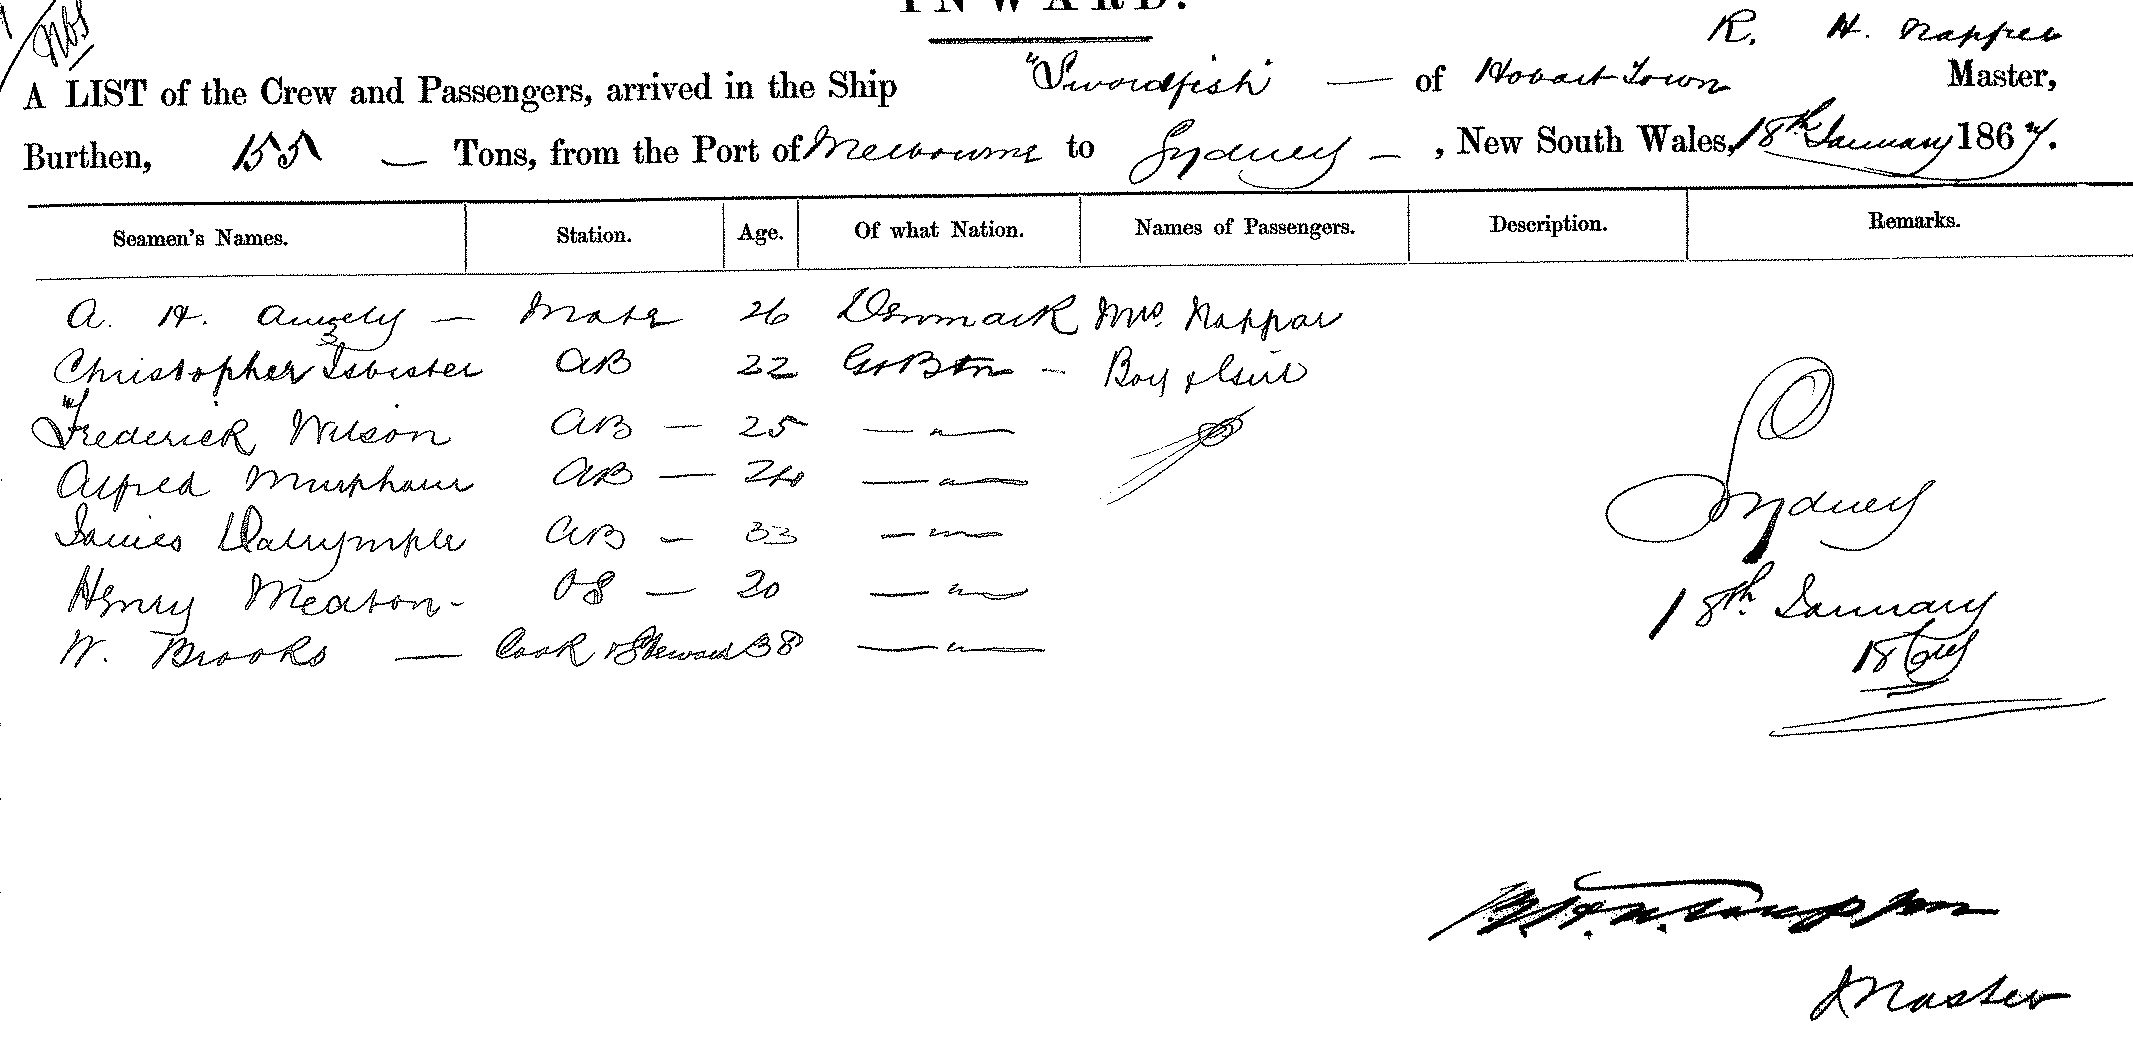 INWARD.
R. H. Napper
A LIST of the Crew and Passengers, arrived in the Ship "Swordfish" — of Hobart Town Master,
Burthen, 155 — Tons, from the Port of Melbourne to Sydney — , New South Wales, 18th January 1867.
Seamen's Names. Station. Age. Of what Nation. Names of Passengers. Description. Remarks.
A. H. — Mate 26 Denmark Mrs. Nappar
Christopher Isbister AB 22 Gt Btn — Boy & Girl
Frederick Wilson AB — 25 — " —
Alfred AB — 24 — " —
James Dalrymple AB — 33 — " —
Henry Meaton - OS — 20 — " —
W. Brooks — Cook & Steward 38 — " —
Sydney
18th January
1867
Master